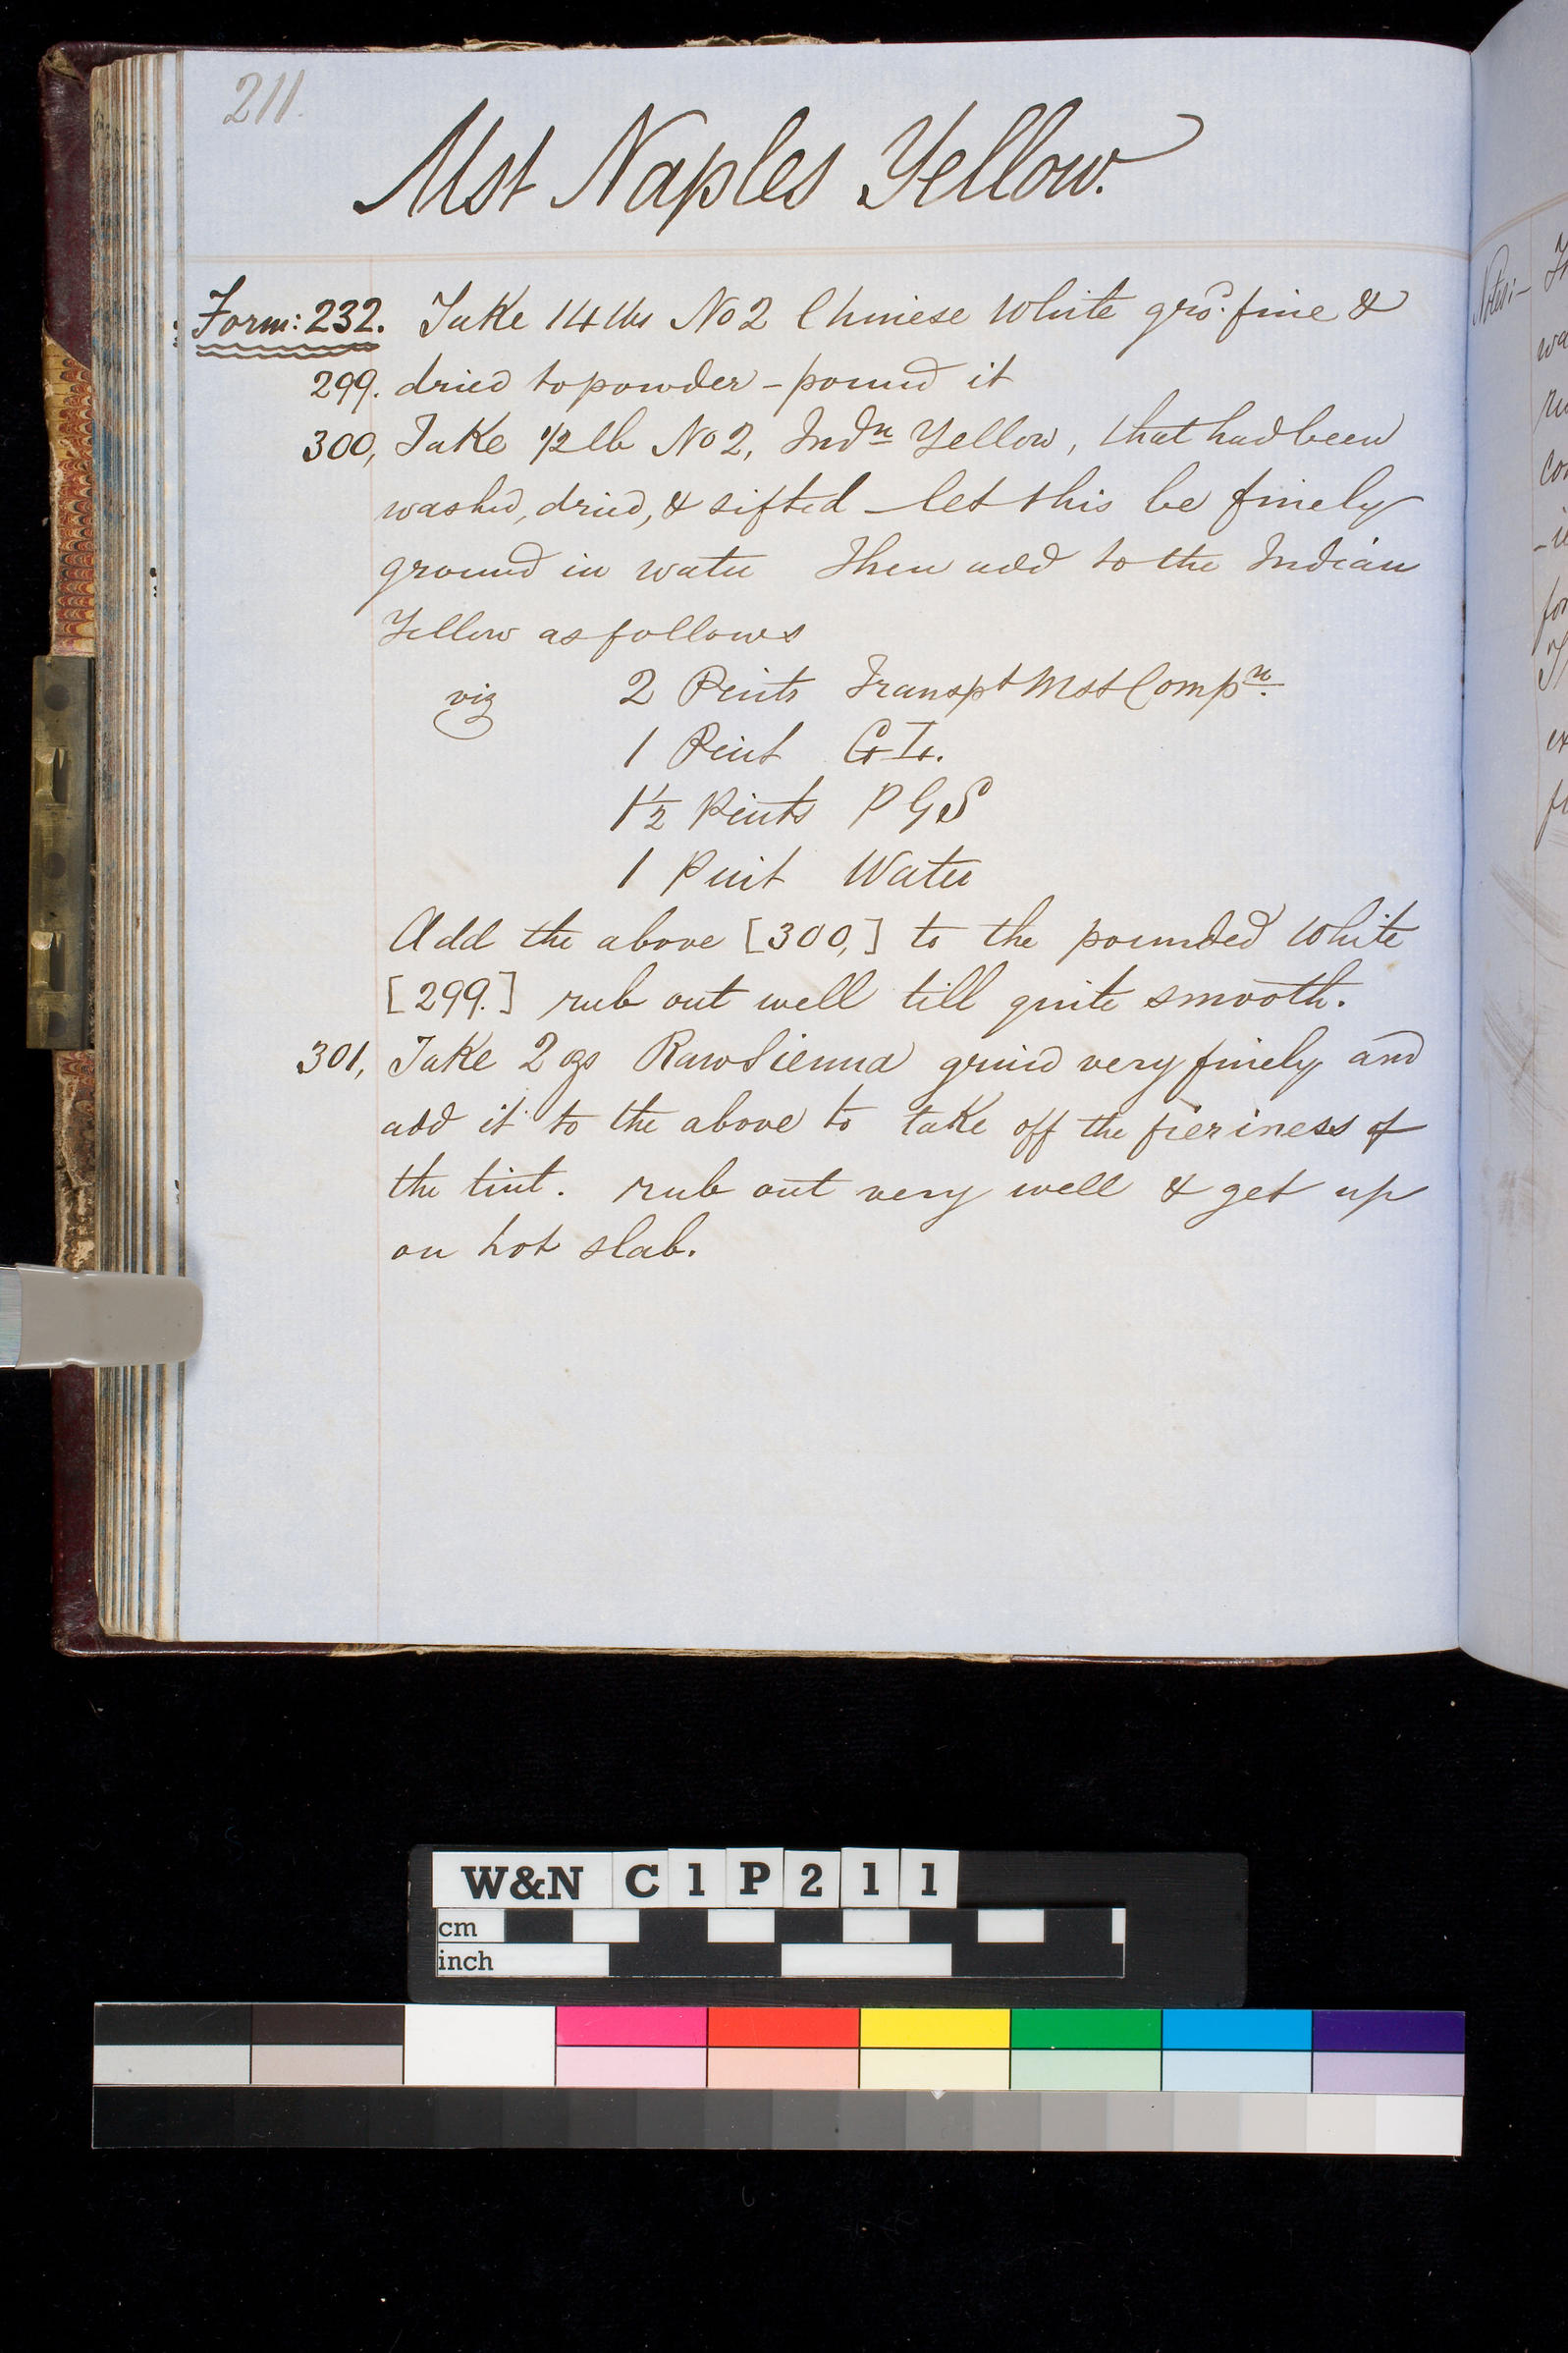 211.
Mst Naples Yellow.
Form: 232. Take 14 lbs No 2 Chinese White grd. fine &
299. dried to powder - pound it
300, Take 1/2 lb No 2, Indn Yellow, that had been
washed, dried, & sifted - let this be finely
ground in water Then add to the Indian
Yellow as follows
viz 2 Pints Transpt Mst Compn.
1 Pint G I.
1 1/2 Pints P G S
1 Pint Water
Add the above [300,] to the pounded White
[299.] rub out well till quite smooth.
301, Take 2 ozs Raw Sienna grind very finely and
add it to the above to take off the fieriness of
the tint. rub out very well & get up
on hot slab.
Notes:-
W&N C1P211
cm
inch